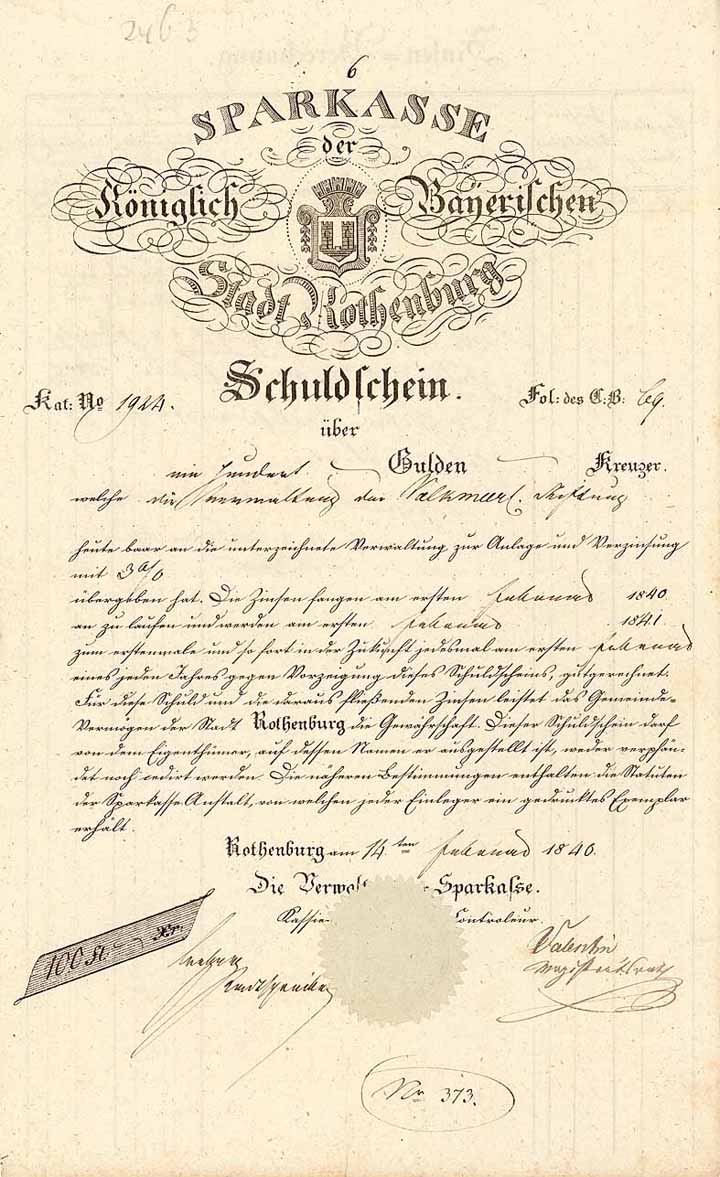 2463
6
SPARKASSE
der
Königlich Bayerischen
Stadt Rothenburg
Schuldschein.
Kat: No 1924. Fol: des C: B:
über
ein hundert Gulden Kreuzer.
welche die Verwaltung der Stiftung
heute baar an die unterzeichnete Verwaltung zur Anlage und Verzinsung
mit 3 %
übergeben hat. Die Zinsen fangen am ersten Februar 1840
an zu laufen und werden am ersten Februar 1841
zum erstenmale und so fort in der Zukunft jedesmal am ersten Februar
eines jeden Jahres gegen Vorzeigung dieses Schuldscheins, gutgerechnet.
Für diese Schuld und die daraus fließenden Zinsen leistet das Gemeinde-
Vermögen der Stadt Rothenburg die Gewährschaft. Dieser Schuldschein darf
von dem Eigenthümer, auf dessen Namen er ausgestellt ist, weder verpfän-
det noch cedirt werden. Die näheren Bestimmungen enthalten die Statuten
der Sparkasse Anstalt, von welchen jeder Einleger ein gedrucktes Exemplar
erhält.
Rothenburg am 14ten Februar 1840.
Die Verwal Sparkasse.
Kassie Controleur.
100 fl. Xr.
Valentin
Magistratsrath
Nr 373.